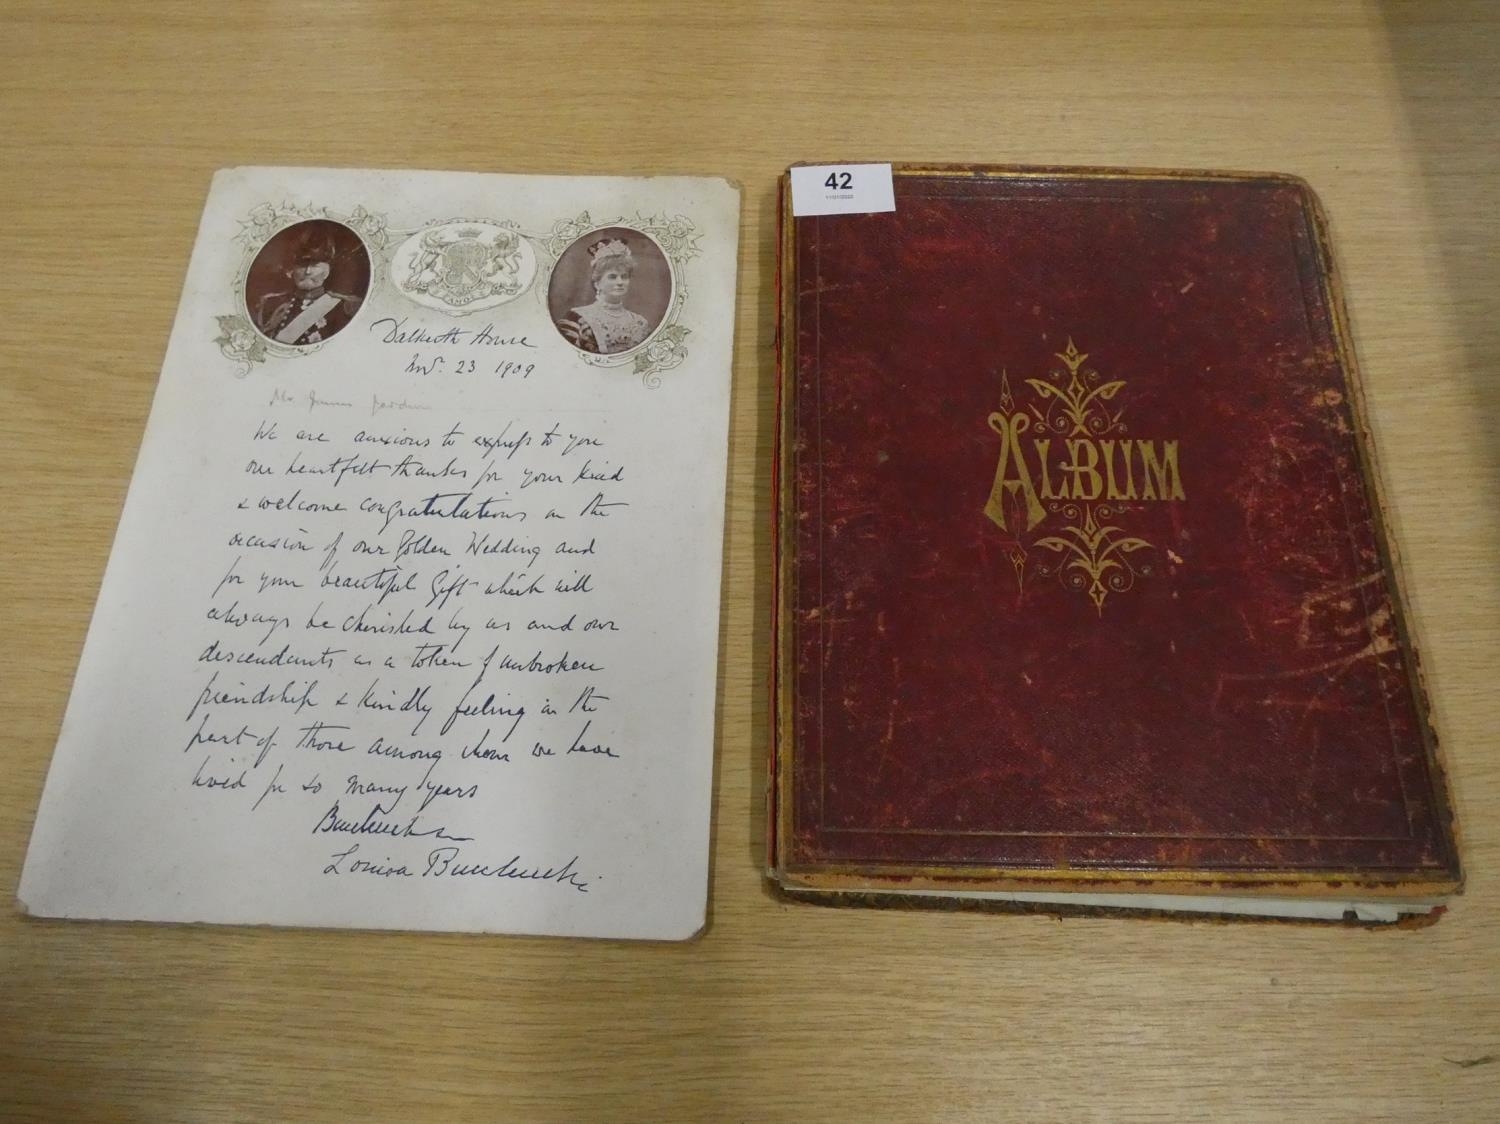 AMO
Dalkeith House
Nov. 23 1909
Mr. James
We are anxious to express to you
our heartfelt thanks for your kind
& welcome congratulations on the
occasion of our Golden Wedding and
for your beautiful Gift which will
always be cherished by us and our
descendants as a token of unbroken
friendship & kindly feeling in the
part of those among whom we have
lived for so many years
Buccleuch
Louisa Buccleuch
42
ALBUM